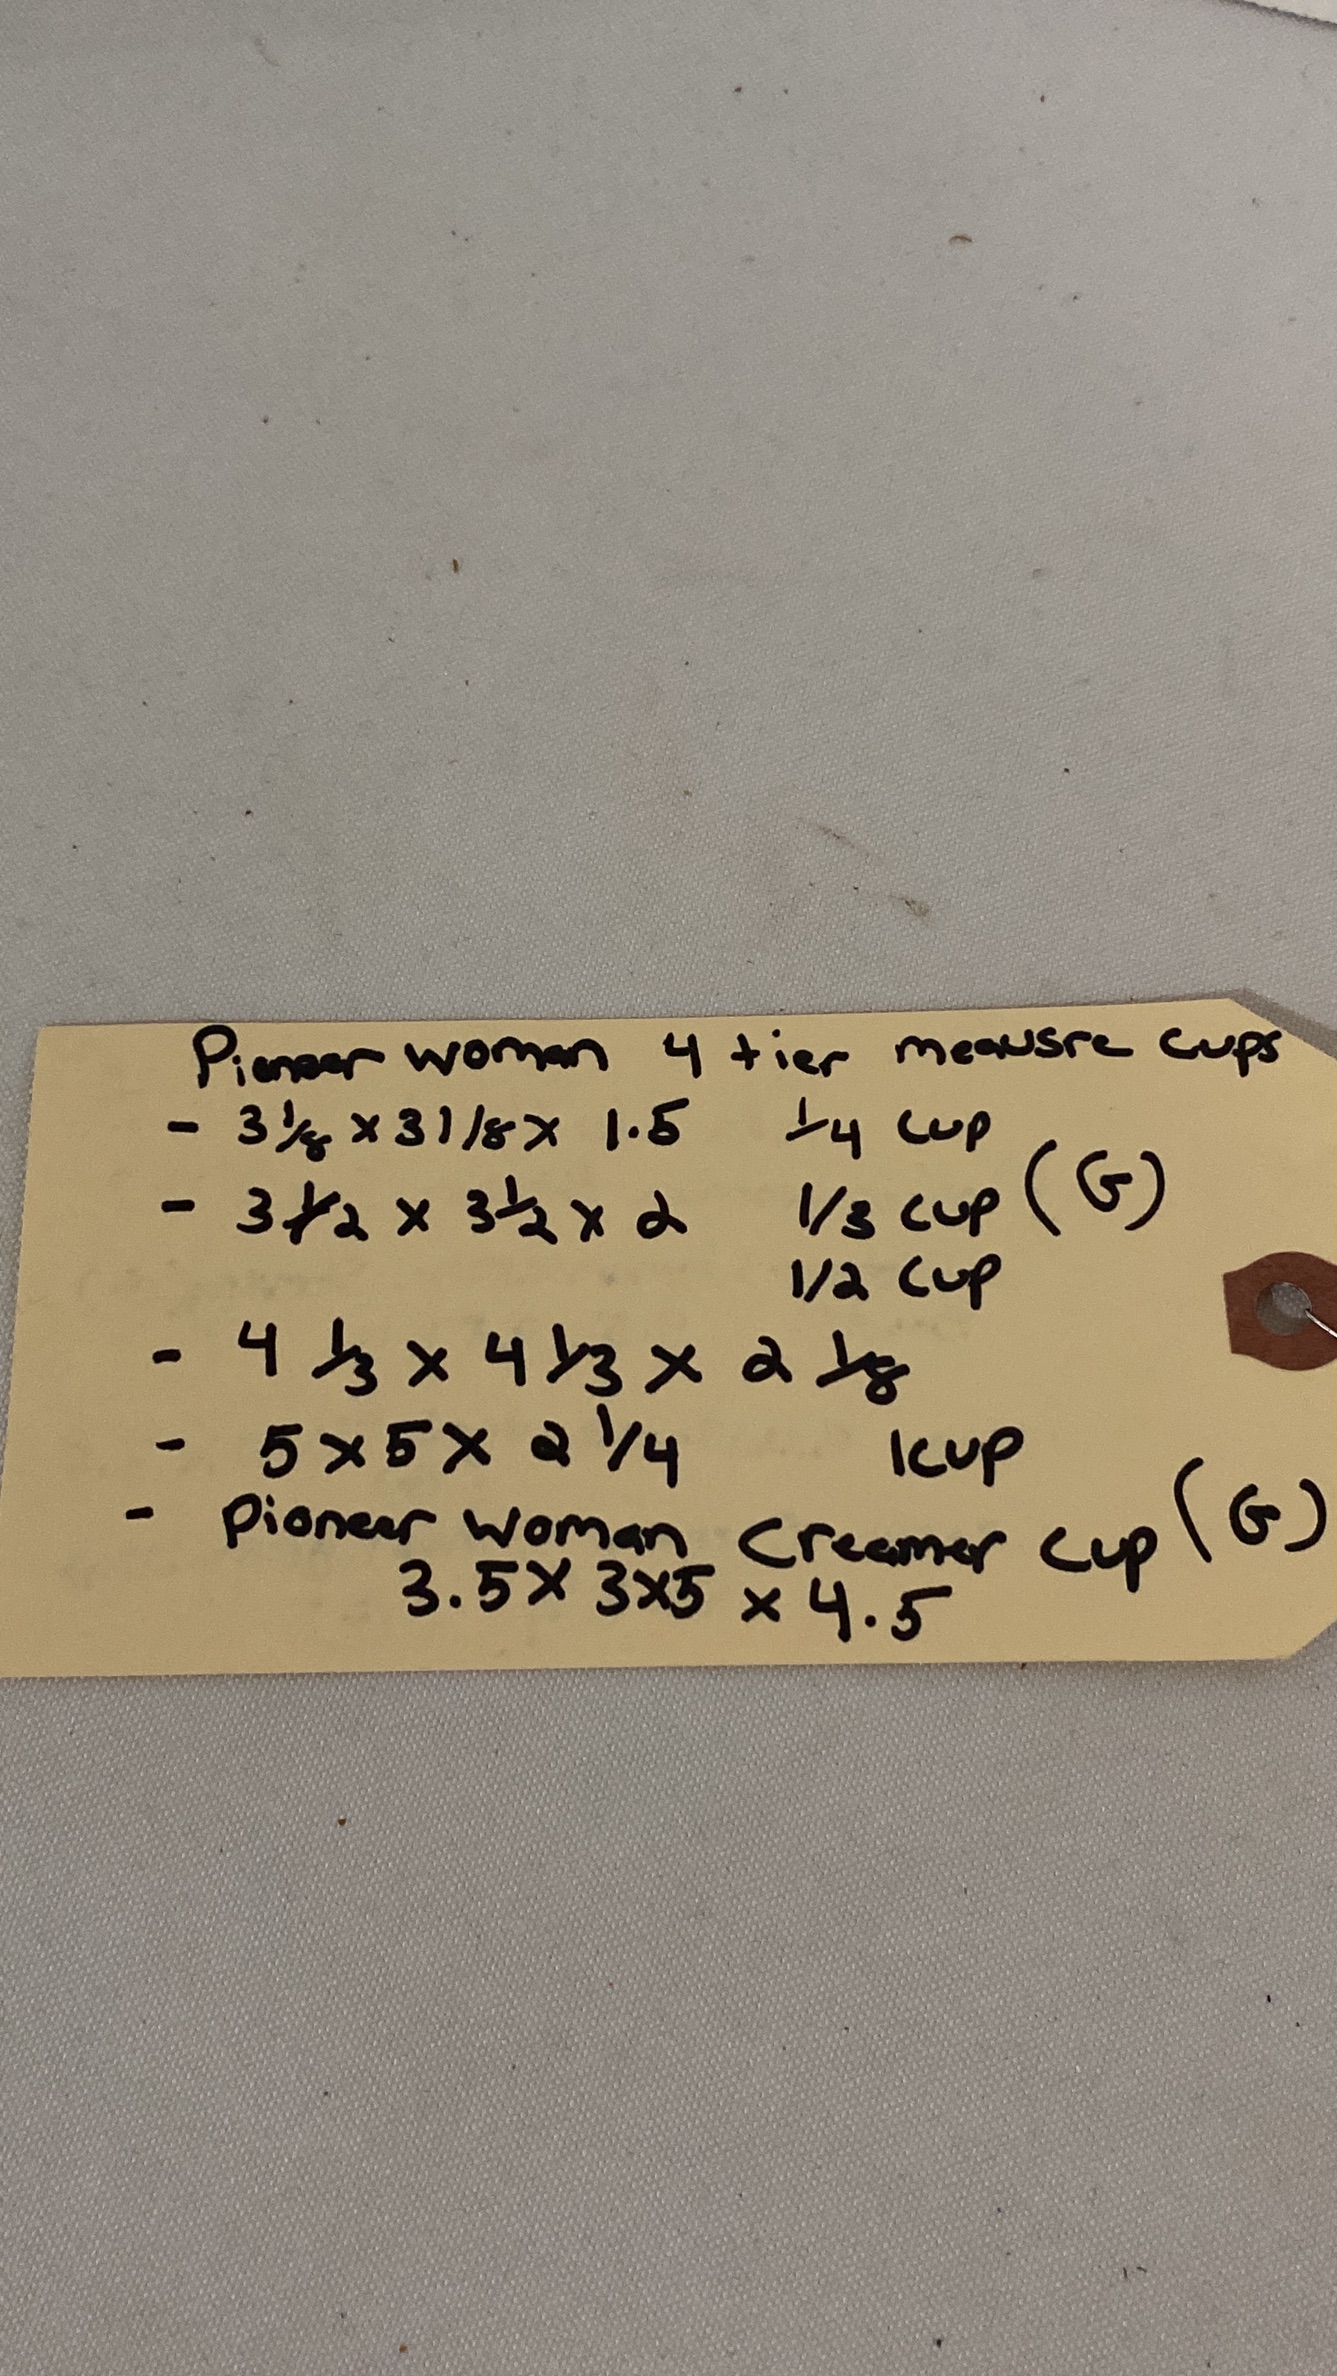 Pioneer woman 4 tier meausre cups
- 3 1/8 x 3 1/8 x 1.5 1/4 cup
- 3 1/2 x 3 1/2 x 2 1/3 cup (G)
1/2 cup
- 4 1/3 x 4 1/3 x 2 1/8
- 5 x 5 x 2 1/4 1 cup
- Pioneer Woman Creamer Cup (G)
3.5 x 3x5 x 4.5